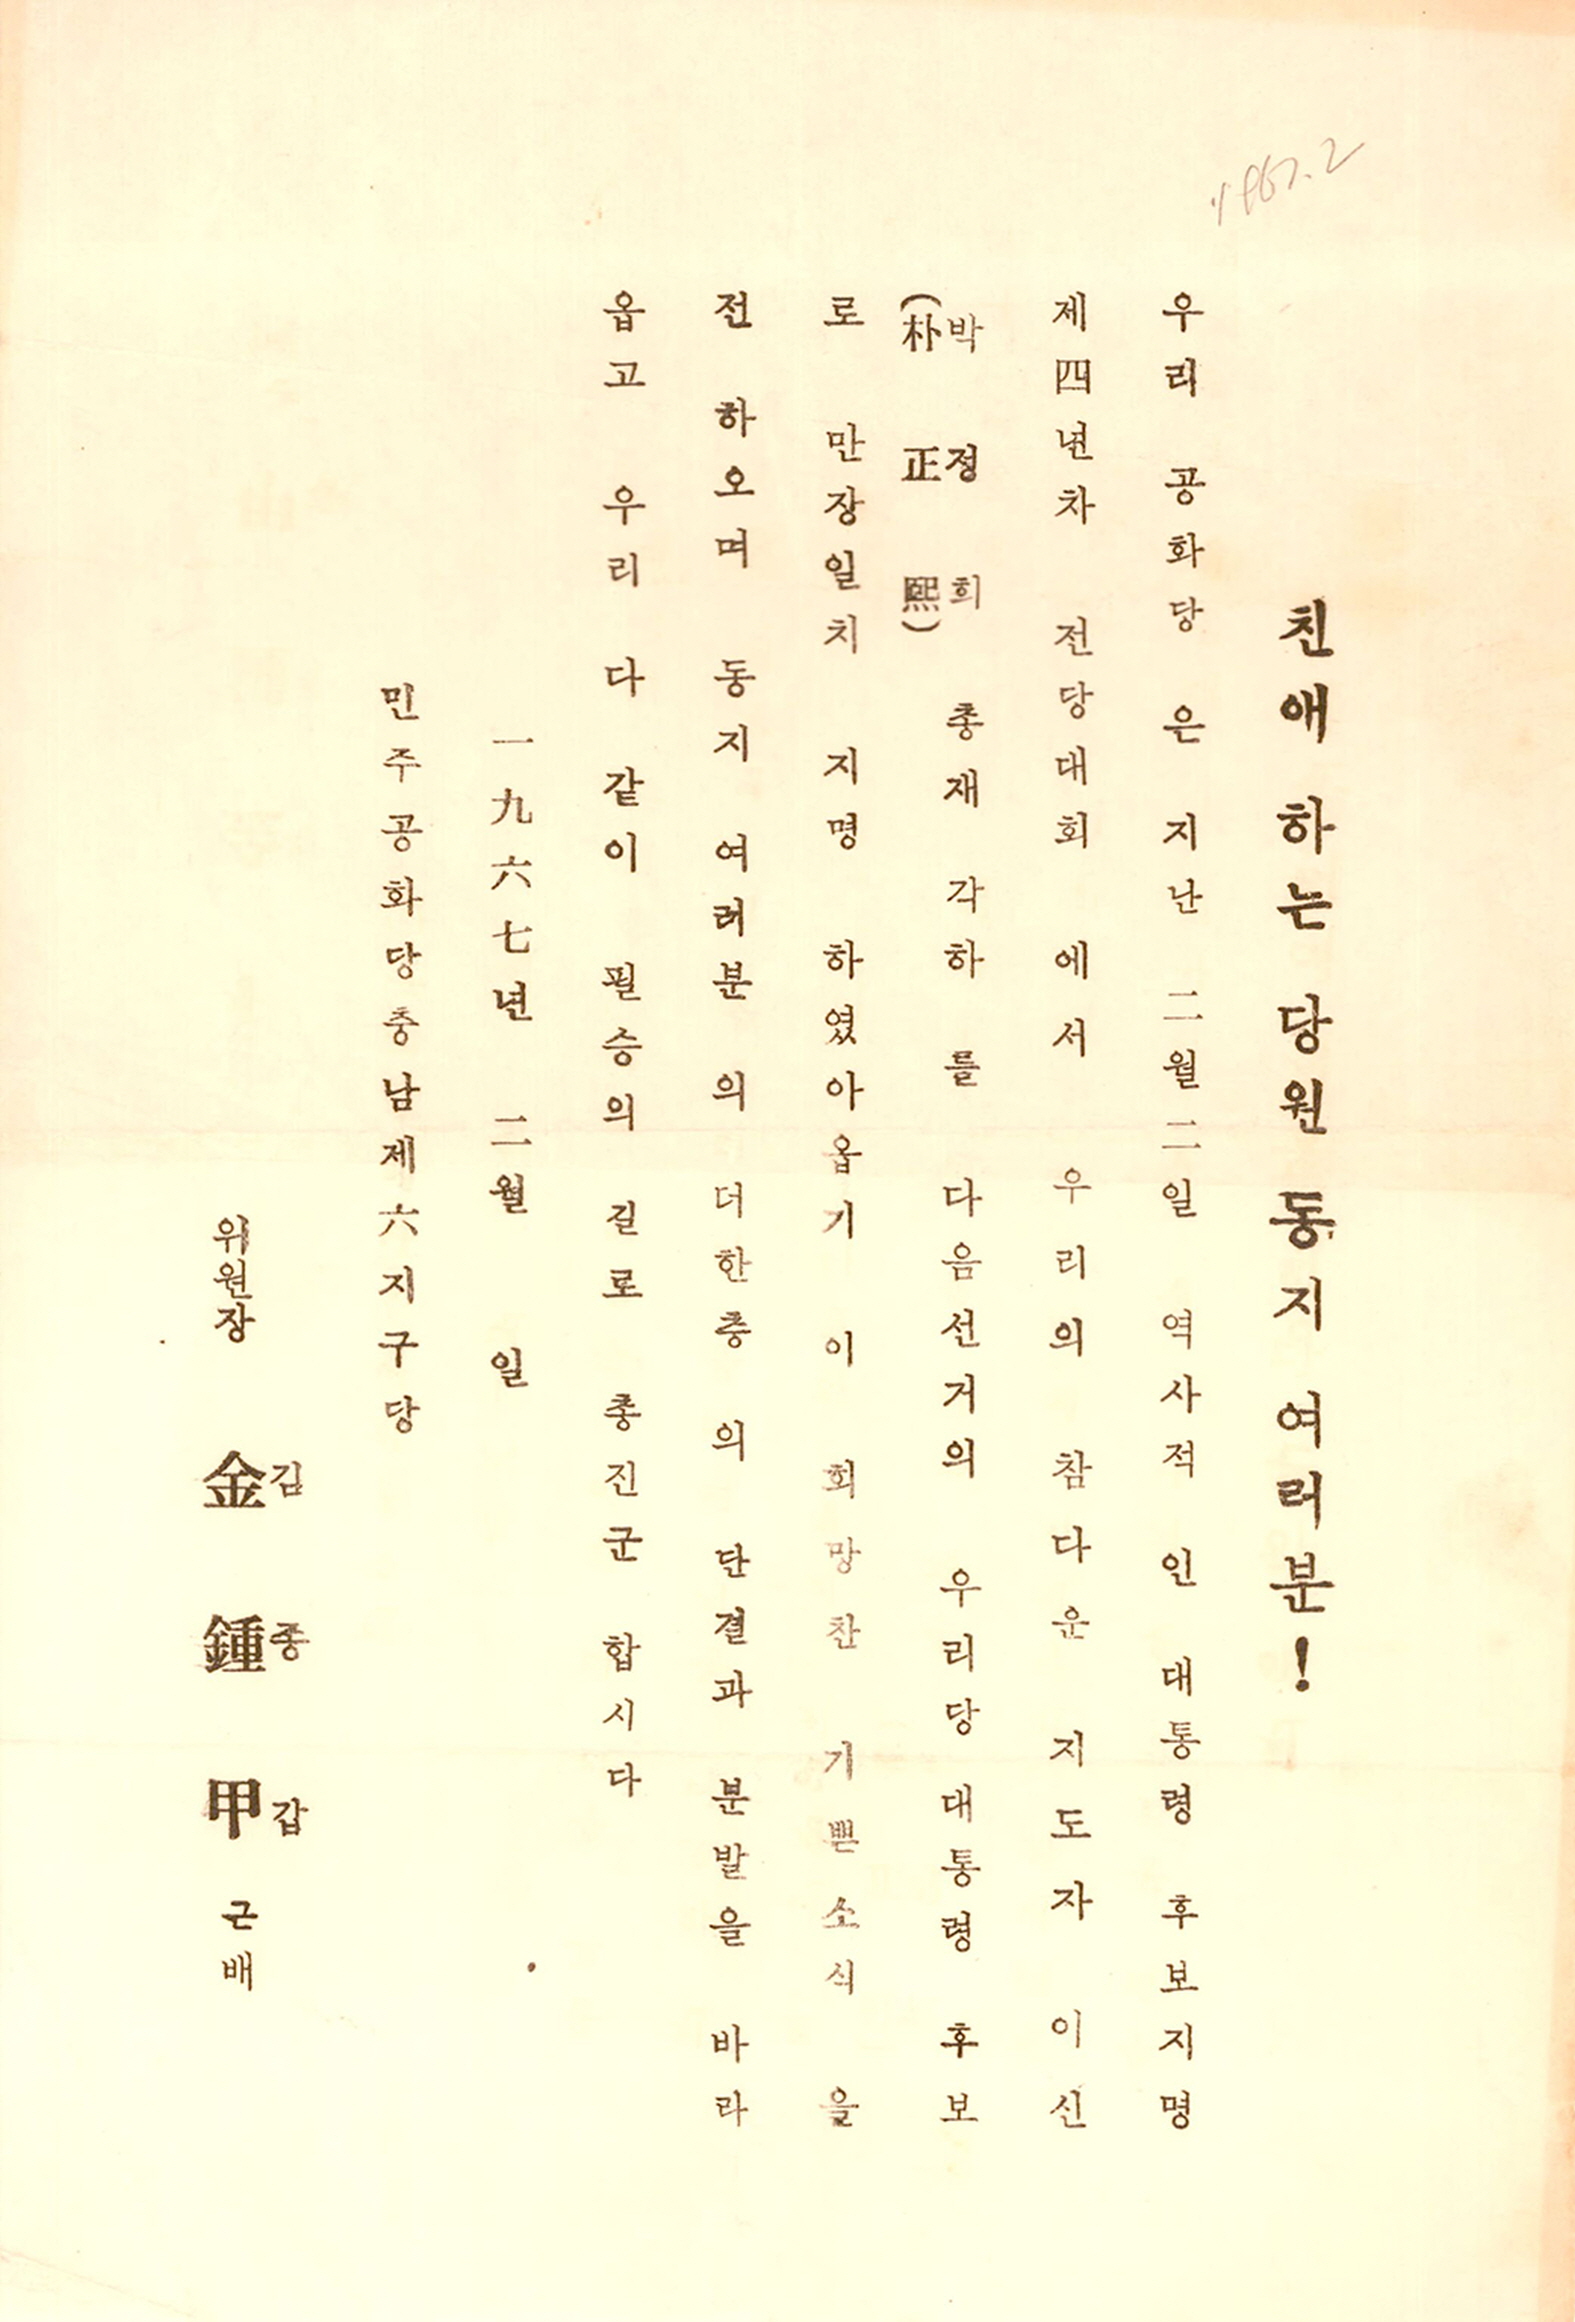 1967.2
친애하는 당원 동지 여러분!
우리 공화당은 지난 二월二일 역사적인 대통령 후보지명
제四년차 전당대회에서 우리의 참다운 지도자이신
박정희(朴正熙) 총재 각하를 다음선거의 우리당 대통령 후보
로 만장일치 지명 하였아옵기 이 희망찬 기쁜소식을
전하오며 동지 여러분의 더한층의 단결과 분발을 바라
옵고 우리 다같이 필승의 길로 총진군 합시다
一九六七년 二월 일
민주공화당충남제六지구당
위원장 金鍾甲 김종갑 근배